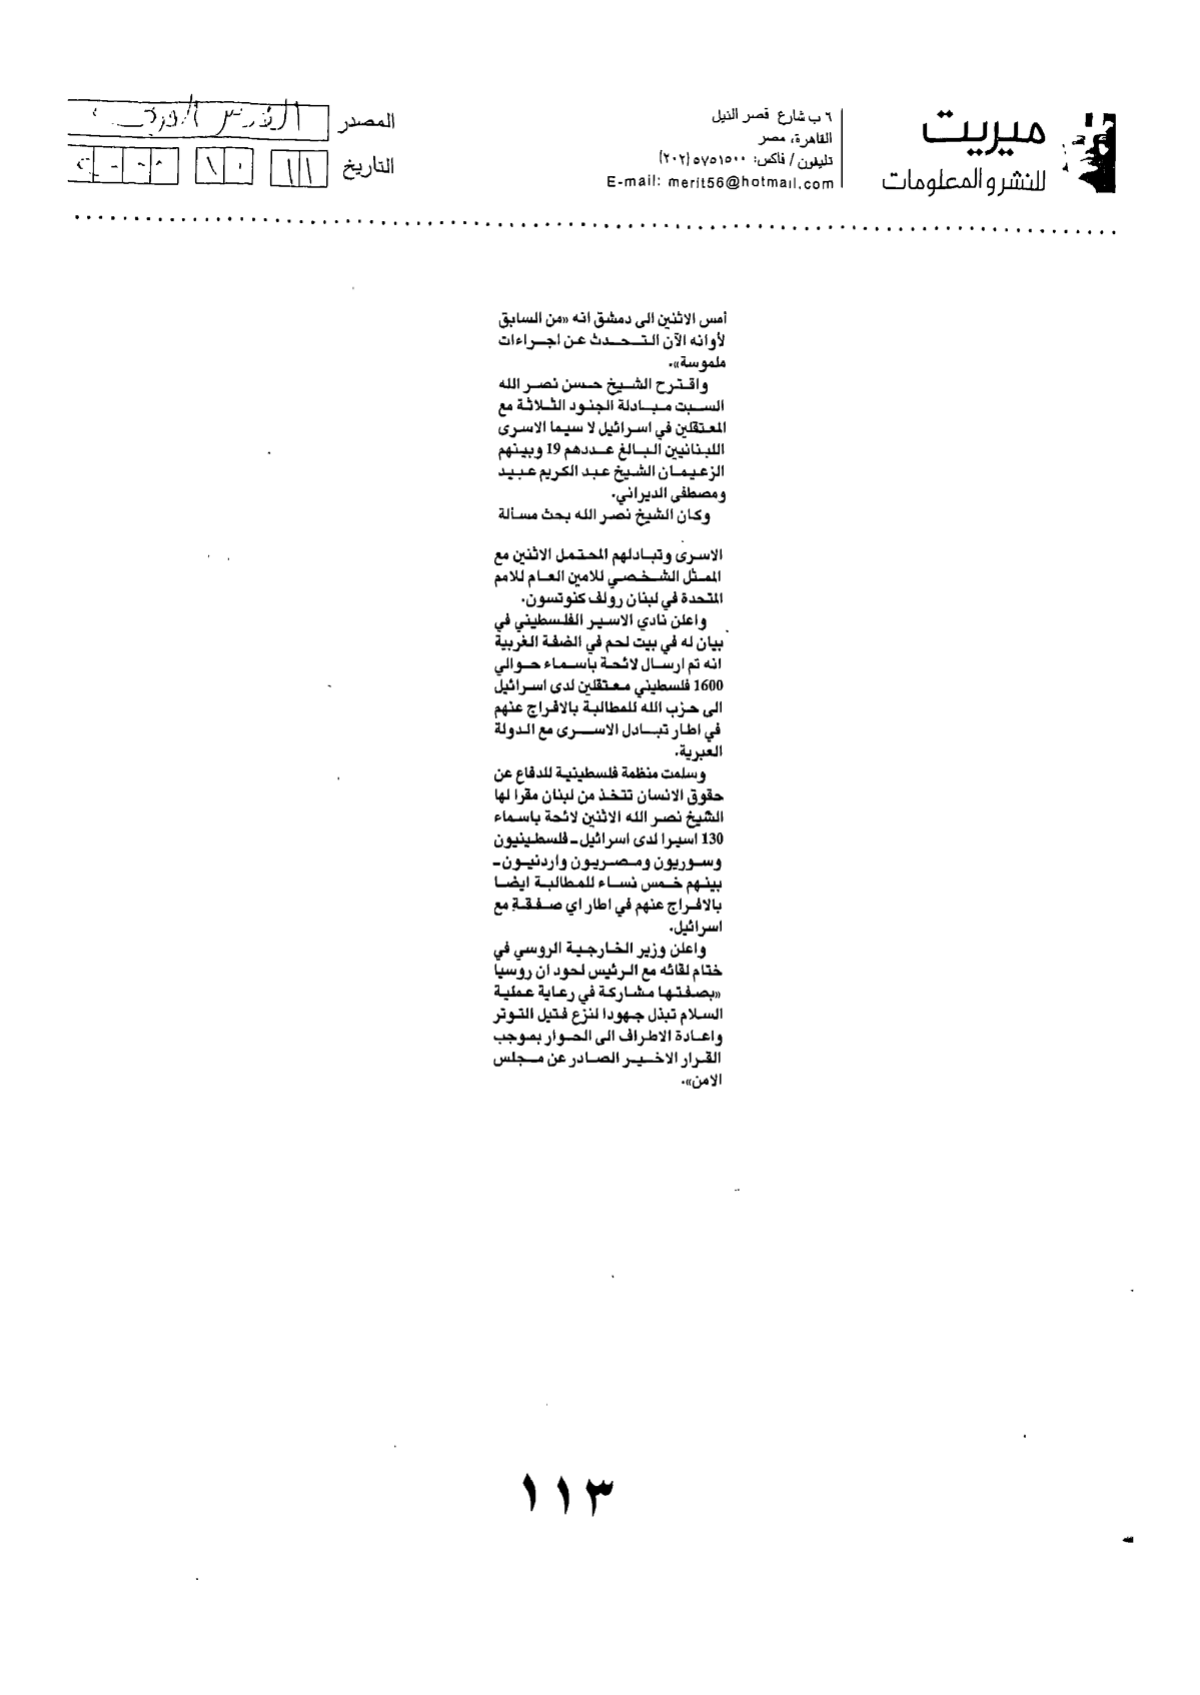 ميريت
للنشر والمعلومات
٦ ب شارع قصر النيل
القاهرة، مصر
تليفون / فاكس: ٥٧٥١٥٠٠ (٢٠٢)
E-mail: merit56@hotmail.com
المصدر
التاريخ ١١ ١٠
أمس الاثنين الى دمشق انه «من السابق
لأوانه الآن التحدث عن اجراءات
ملموسة».
واقترح الشيخ حسن نصر الله
السبت مبادلة الجنود الثلاثة مع
المعتقلين في اسرائيل لا سيما الاسرى
اللبنانيين البالغ عددهم 19 وبينهم
الزعيمان الشيخ عبد الكريم عبيد
ومصطفى الديراني.
وكان الشيخ نصر الله بحث مسألة
الاسرى وتبادلهم المحتمل الاثنين مع
الممثل الشخصي للامين العام للامم
المتحدة في لبنان رولف كنوتسون.
واعلن نادي الاسير الفلسطيني في
بيان له في بيت لحم في الضفة الغربية
انه تم ارسال لائحة باسماء حوالي
1600 فلسطيني معتقلين لدى اسرائيل
الى حزب الله للمطالبة بالافراج عنهم
في اطار تبادل الاسرى مع الدولة
العبرية.
وسلمت منظمة فلسطينية للدفاع عن
حقوق الانسان تتخذ من لبنان مقرا لها
الشيخ نصر الله الاثنين لائحة باسماء
130 اسيرا لدى اسرائيل ـ فلسطينيون
وسوريون ومصريون واردنيون ـ
بينهم خمس نساء للمطالبة ايضا
بالافراج عنهم في اطار اي صفقة مع
اسرائيل.
واعلن وزير الخارجية الروسي في
ختام لقائه مع الرئيس لحود ان روسيا
«بصفتها مشاركة في رعاية عملية
السلام تبذل جهودا لنزع فتيل التوتر
واعادة الاطراف الى الحوار بموجب
القرار الاخير الصادر عن مجلس
الامن».
١١٣